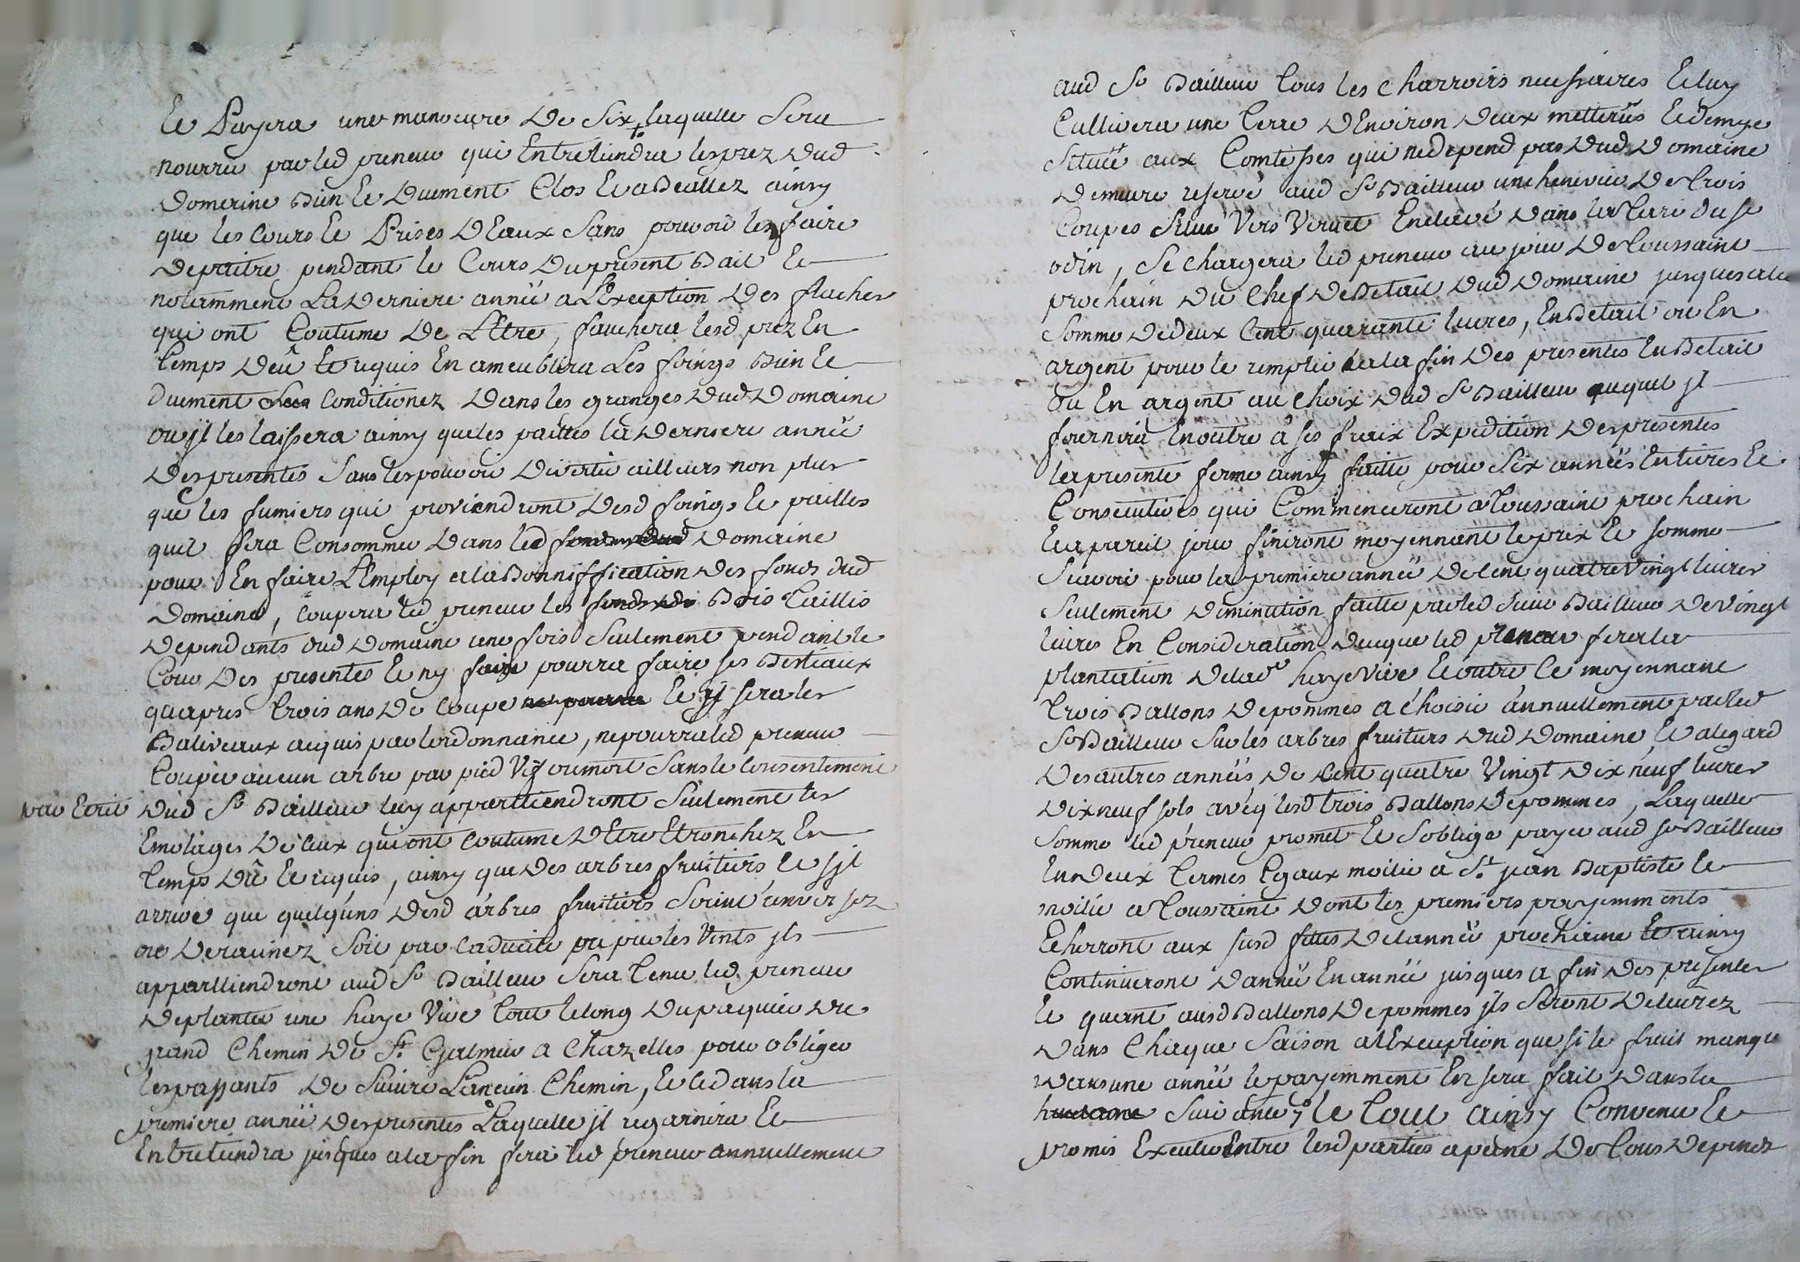 et Payera une manoeuvre De Six, laquelle Sera
nourrie par led preneur qui Entretiendra les prez Dud
Domaine Bien et Duement Clos et abeallez ainsy
que les Cours et Prises DEaux Sans pouvoir les faire
Depaitre pendant le Cours Du present Bail et
notamment La Derniere année a LException Des flaches
qui ont Coutume De L'Etre, fauchera lesd prez En
Temps Deû et requis En ameublira Les foings Bien et
Duement Conditionez Dans les granges Dud Domaine
ou jl les laissera ainsy que les pailles la Derniere année
Des presentes Sans les pouvoir Divertir ailleurs non plus
que les fumiers qui proviendront Desd foings et pailles
quil fera Consommer Dans led Domaine
pour En faire L'Employ a la Bonniffication Des fonds dud
Domaine, Coupera led preneur les Bois Taillis
Dependants dud Domaine une fois Seulement pendant le
Cour Des presentes et ny pourra faire ses Bestiaux
quapres Trois ans De Coupe et jl fera les
Baliveaux acquis par lordonnance, ne pourra led preneur
Couper aucun arbre par pied Vif ou mort Sans le Consentement
par Ecrit Dud Sr Bailleur luy appartiendront Seulement les
Emolages De Ceux qui ont Coutume DEtre Etronchez En
Temps Dû et requis, ainsy que Des arbres fruitiers et sjl
arrive que quelquns Desd arbres fruitiers Soient renversez
ou Deracinez Soit par Caducité ou par les Vents jls
appartiendront aud Sr Bailleur Sera Tenu led preneur
De planter une haye Vive Tout le long Du paquier
grand Chemin De St Galmier a Chazelles pour obliger
les passants De Suivre Lancien Chemin, et ce dans la
premiere année Des presentes Laquelle jl regarnira et
Entretiendra jusques a la fin fera led preneur annuellement
aud Sr Bailleur Tous les Charroirs necessaires et luy
Cultivera une Terre DEnviron Deux metterées et demye
Scituée aux Comtesses qui ne depend pas Dud Domaine
Demeure reservé aud Sr Bailleur un cheneviers De Trois
Coupes Situé Vers Enclavé Dans la Terre du Sr
odin, Se Chargera led preneur au jour De Toussaint
prochain Du Chef De Betail Dud Domaine jusques a la
Somme De deux Cent quarante livres, En Betail ou En
argent pour le remplir a la fin Des presentes En Betail
ou En argent au Choix Dud Sr Bailleur auquel jl
fournira En outre à ses fraix Expedition Des presentes
la presente ferme ainsy faitte pour Six années Entieres et
Consecutives qui Commenceront a Toussaint prochain
et a pareil jour finiront moyennant le prix et somme
Scavoir pour la premiere année De Cent quatre Vingt livres
Seulement Diminution faitte par led Sieur Bailleur De Vingt
livres En Consideration De ce que led preneur fera la
plantation De lad haye Vive et outre Ce moyennant
Trois Ballons De pommes a choisir annuellement par led
Sr Bailleur Sur les arbres fruitiers Dud Domaine, et a legard
Des autres années De Cent quatre Vingt Dix neuf livres
Dix neuf sols avéq lesd Trois Ballons De pommes, Laquelle
Somme led preneur promet et Soblige payer aud Sr Bailleur
En Deux Termes Egaux moitié a St jean Baptiste et
moitié a Toussaint Dont les premiers payemments
Echerront aux susd fettes De lannée prochaine et ainsy
Continueront Dannée En année jusques a fin Des presentes
et quant ausd Ballons De pommes jls Seront Delivrez
Dans Chaque Saison a lException que si le fruit manque
Dans une année le payemment En sera fait Dans la
Suivante; le Tout ainsy Convenu et
promis Executer Entre lesd parties a peine De Tous Depends